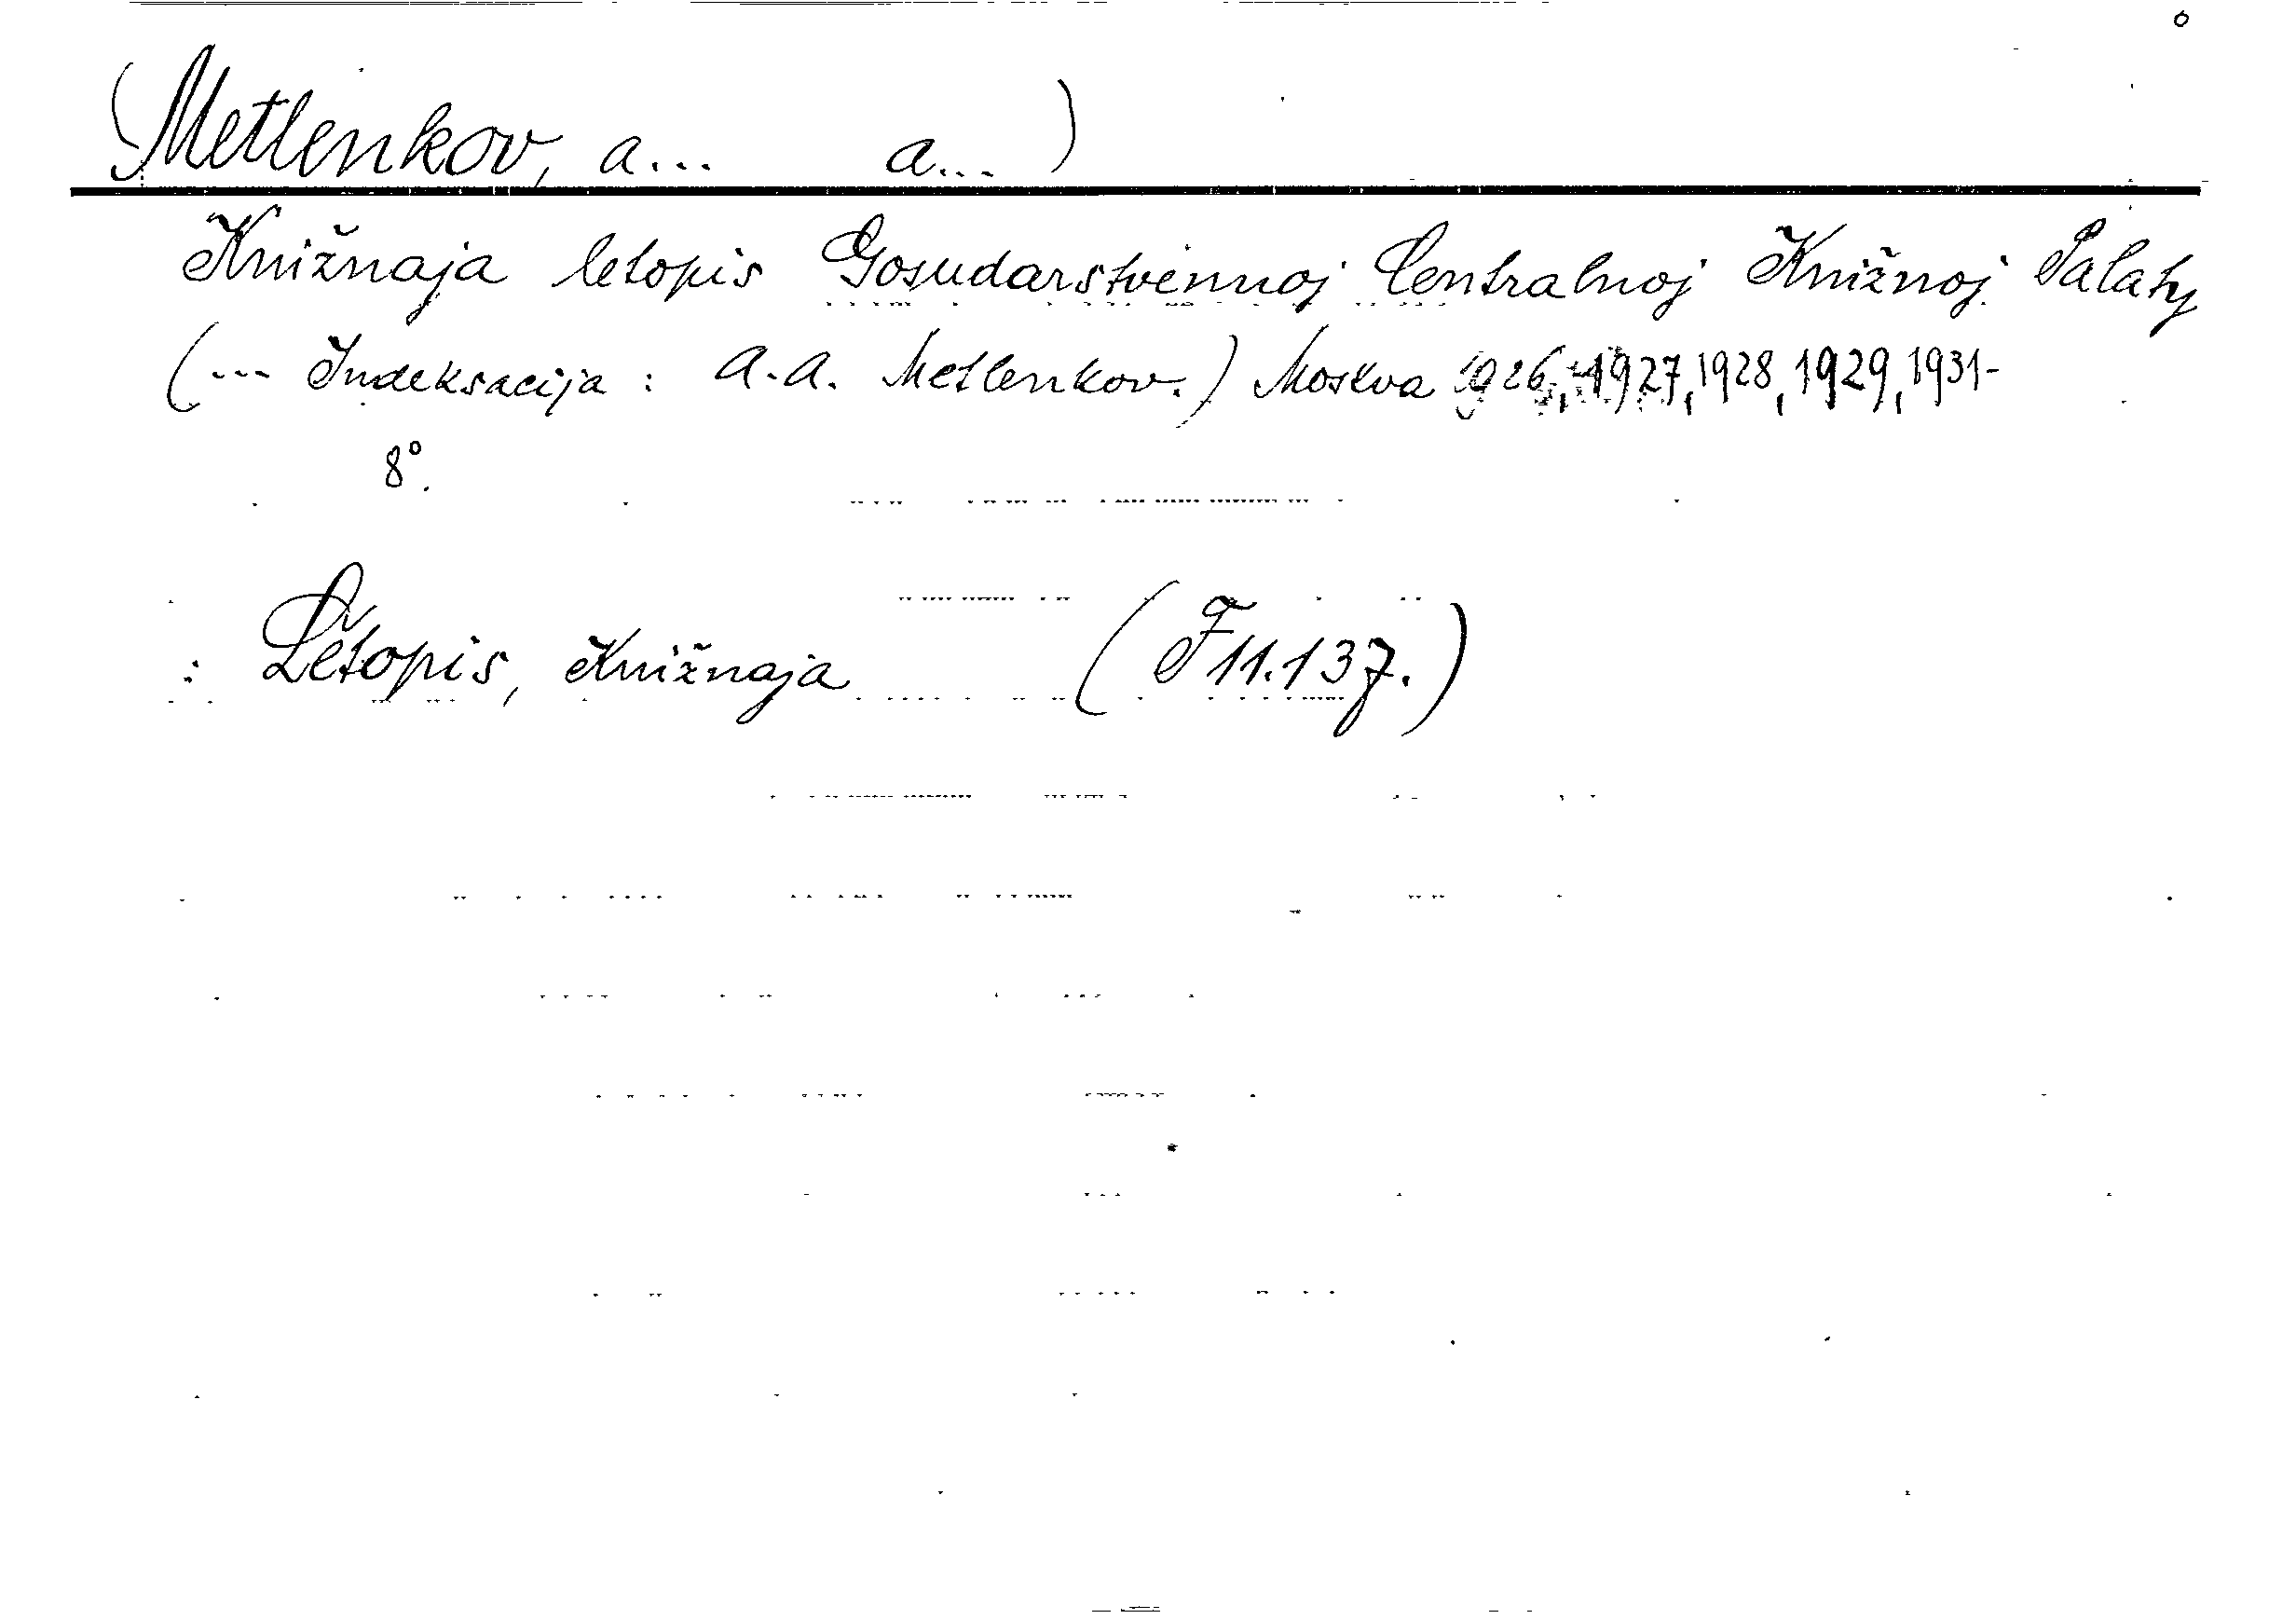 (Metlenkov, A... A...)
Knižnaja letopis Gosudarstvennoj Centralnoj Knižnoj Palaty
(... Indeksacija: A.A. Metlenkov.) Moskva 1926, 1927, 1928, 1929, 1931-
8°.
: Letopis, Knižnaja (F 11.137.)